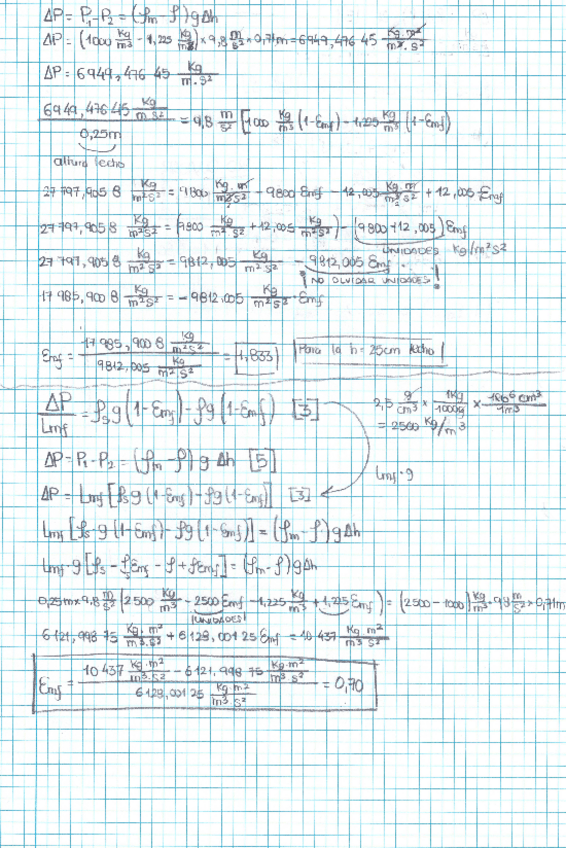 ΔP = P₁ - P₂ = (ρm - ρ) g Δh
ΔP = (1000 Kg/m³ - 1,225 Kg/m³) × 9,8 m/s² × 0,71m = 6949,476 45 Kg·m²/m³·s²
ΔP = 6949,476 45 Kg/m·s²
6949,476 45 Kg/m·s² / 0,25m = 9,8 m/s² [1000 Kg/m³ (1-Emf) - 1,225 Kg/m³ (1-Emf)]
altura lecho
27 797,905 8 Kg/m²s² = 9800 Kg·m/m³s² - 9800 Emf - 12,005 Kg·m/m³s² + 12,005 Emf
27 797,905 8 Kg/m²s² = (9800 Kg/m²s² + 12,005 Kg/m²s²) - (9800 + 12,005) Emf
UNIDADES Kg/m²s²
27 797,905 8 Kg/m²s² = 9812,005 Kg/m²s² - 9812,005 Emf
¡NO OLVIDAR UNIDADES!
17 985,900 8 Kg/m²s² = - 9812,005 Kg/m²s² · Emf
Emf = 17 985,900 8 Kg/m²s² / 9812,005 Kg/m²s² = 1,833 Para la h = 25cm lecho
ΔP/Lmf = ρs g (1-Emf) - ρg (1-Emf) [3]
2,5 g/cm³ × 1Kg/1000g × 100⁶ cm³/1m³
= 2500 Kg/m³
ΔP = P₁ - P₂ = (ρm - ρ) g Δh [5]
Lmf · g
ΔP = Lmf [ρs g (1-Emf) - ρg (1-Emf)] [3]
Lmf [ρs · g (1-Emf) - ρg (1-Emf)] = (ρm - ρ) g Δh
Lmf · g [ρs - ρs Emf - ρ + ρ Emf] = (ρm - ρ) g Δh
0,25m × 9,8 m/s² (2500 Kg/m³ - 2500 Emf - 1,225 Kg/m³ + 1,225 Emf) = (2500 - 1000) Kg/m³ · 9,8 m/s² × 0,71m
¡UNIDADES!
6121,998 75 Kg·m²/m³·s² + 6128,001 25 Emf = 10 437 Kg·m²/m³s²
Emf = 10 437 Kg·m²/m³·s² - 6121,998 75 Kg·m²/m³·s² / 6128,001 25 Kg·m²/m³s² = 0,70